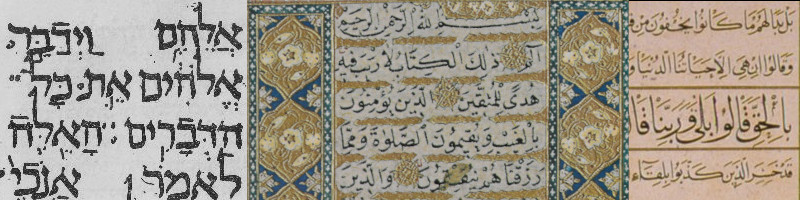 אלהים וידבר
אלהים את כל
הדברים האלה
לאמר אנכי
بسم الله الرحمن الرحيم
الم ذلك الكتاب لا ريب فيه
هدى للمتقين الذين يؤمنون
بالغيب ويقيمون الصلوة ومما
رزقناهم ينفقون والذين
بل بدا لهم ما كانوا يخفون من
وقالوا ان هي الا حياتنا الدنيا و
بالحق قالوا بلى وربنا قا
قد خسر الذين كذبوا بلقاء